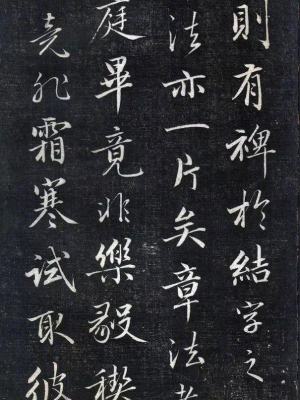 則有裨於結字之
法亦一片矣章法若
庭畢竟非樂毅稧
竟非霜寒試取彼